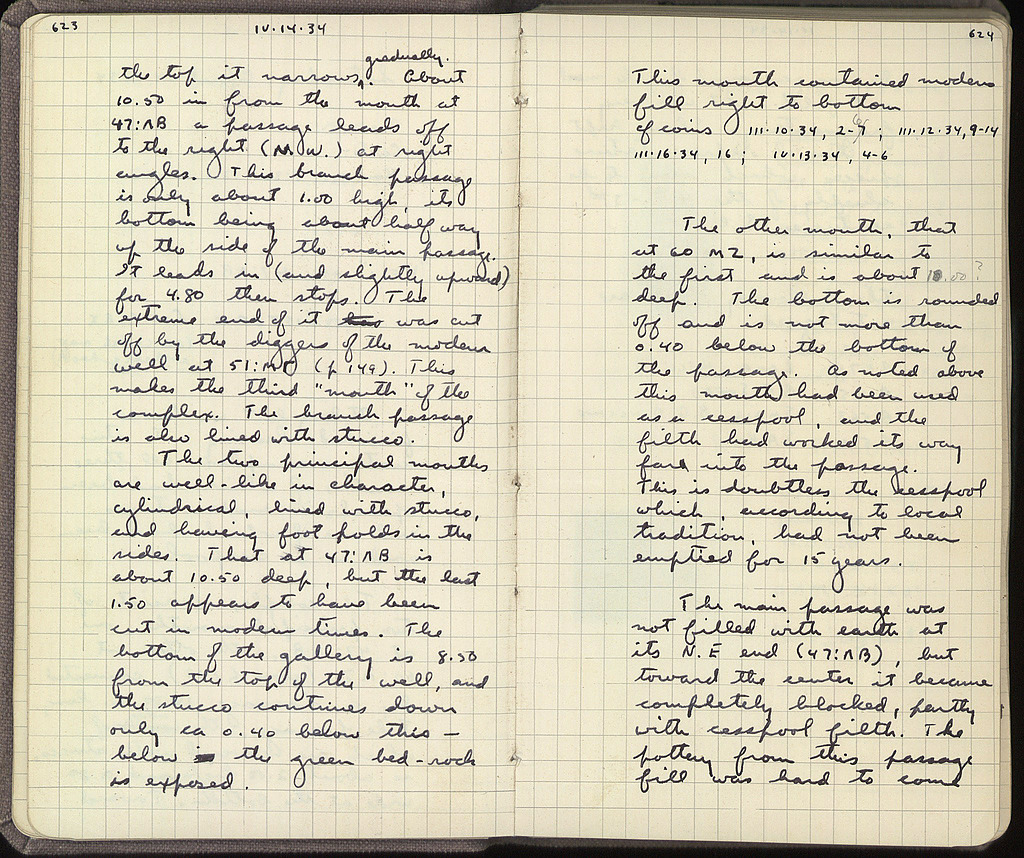 623
IV.14.34
gradually.
the top it narrows, . About
10.50 in from the mouth at
47:ΛB a passage leads off
to the right (N.W.) at right
angles. This branch passage
is only about 1.00 high, its
bottom being about half way
up the side of the main passage.
It leads in (and slightly upward)
for 4.80 then stops. The
extreme end of it was cut
off by the diggers of the modern
well at 51: (p 149). This
makes the third "mouth" of the
complex. The branch passage
is also lined with stucco.
The two principal mouths
are well-like in character,
cylindrical, lined with stucco,
and having foot holds in the
sides. That at 47:ΛB is
about 10.50 deep, but the last
1.50 appears to have been
cut in modern times. The
bottom of the gallery is 8.50
from the top of the well, and
the stucco continues down
only ca 0.40 below this –
below the green bed-rock
is exposed.
624
This mouth contained modern
fill right to bottom
cf coins III.10.34, 2-7 ; III.12.34, 9-14
III.16.34, 16 ; IV.13.34, 4-6
The other mouth, that
at 60 MZ, is similar to
the first and is about 10.00?
deep. The bottom is rounded
off and is not more than
0.40 below the bottom of
the passage. As noted above
this mouth had been used
as a cesspool, and the
filth had worked its way
far into the passage.
This is doubtless the cesspool
which, according to local
tradition, had not been
emptied for 15 years.
The main passage was
not filled with earth at
its N.E end (47:ΛB), but
toward the center it became
completely blocked, partly
with cesspool filth. The
pottery from this passage
fill was hard to come